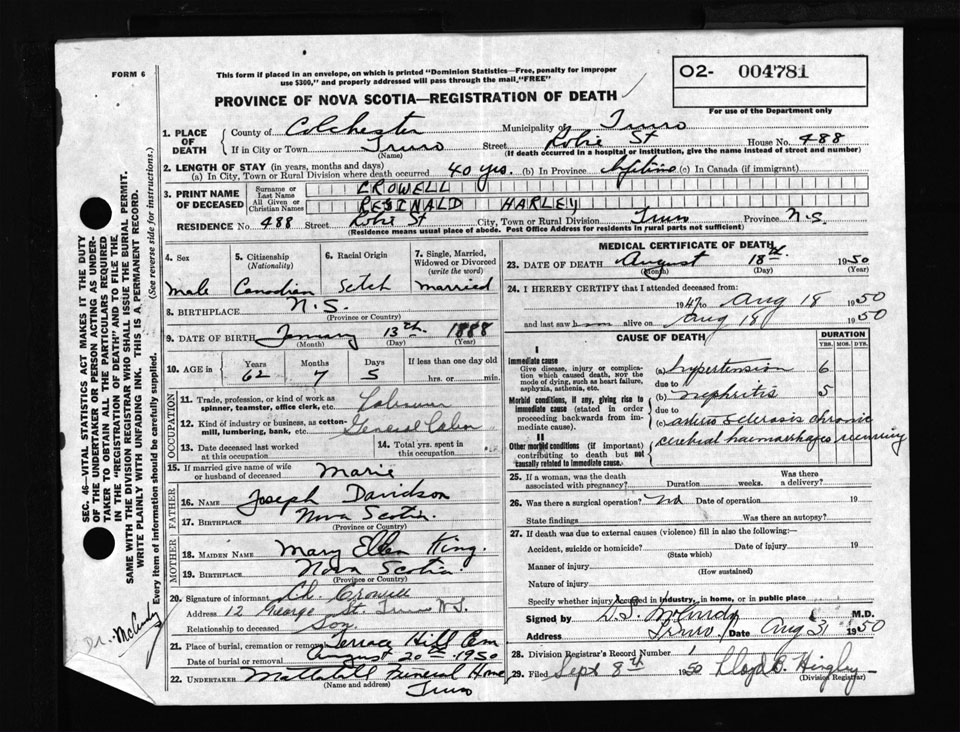 FORM 6
This form if placed in an envelope, on which is printed "Dominion Statistics—Free, penalty for improper use $300," and properly addressed will pass through the mail, "FREE"
O2- 004781
For use of the Department only
PROVINCE OF NOVA SCOTIA—REGISTRATION OF DEATH
1. PLACE OF DEATH
County of Colchester Municipality of Truro
If in City or Town Truro (Name) Street Robie St House No. 488
(If death occurred in a hospital or institution, give the name instead of street and number)
2. LENGTH OF STAY (in years, months and days)
(a) In City, Town or Rural Division where death occurred 40 yrs. (b) In Province Lifetime (c) In Canada (if immigrant)
3. PRINT NAME OF DECEASED
Surname or Last Name CROWELL
All Given or Christian Names REGINALD HARLEY
RESIDENCE No. 488 Street Robie St City, Town or Rural Division Truro Province N.S.
(Residence means usual place of abode. Post Office Address for residents in rural parts not sufficient)
4. Sex male
5. Citizenship (Nationality) Canadian
6. Racial Origin Scotch
7. Single, Married, Widowed or Divorced (write the word) married
8. BIRTHPLACE N.S.
(Province or Country)
9. DATE OF BIRTH January 13th 1888
(Month) (Day) (Year)
10. AGE in Years 62 Months 7 Days 5 If less than one day old hrs. or min.
OCCUPATION
11. Trade, profession, or kind of work as spinner, teamster, office clerk, etc.
12. Kind of industry or business, as cotton-mill, lumbering, bank, etc. General Labor
13. Date deceased last worked at this occupation
14. Total yrs. spent in this occupation
15. If married give name of wife or husband of deceased Marie
FATHER
16. NAME Joseph Davidson
17. BIRTHPLACE Nova Scotia
(Province or Country)
MOTHER
18. MAIDEN NAME Mary Ellen King.
19. BIRTHPLACE Nova Scotia
(Province or Country)
20. Signature of informant Crowell
Address 12 George St. Truro N.S.
Relationship to deceased Son
21. Place of burial, cremation or removal Terrace Hill Cem
Date of burial or removal August 20th 1950
22. UNDERTAKER Mattatall Funeral Home
(Name and address) Truro
MEDICAL CERTIFICATE OF DEATH
23. DATE OF DEATH August 18th. 1950
(Month) (Day) (Year)
24. I HEREBY CERTIFY that I attended deceased from:
1947 to Aug 18 1950
and last saw him alive on Aug 18 1950
CAUSE OF DEATH
DURATION
YRS. MOS. DYS.
I
Immediate cause
Give disease, injury or complication which caused death, not the mode of dying, such as heart failure, asphyxia, asthenia, etc.
(a) hypertension 6
due to
Morbid conditions, if any, giving rise to immediate cause (stated in order proceeding backwards from immediate cause).
(b) nephritis 5
due to
(c) arterio sclerosis chronic
II
Other morbid conditions (if important) contributing to death but not causally related to immediate cause.
cerebral haemorrhages recurring
25. If a woman, was the death associated with pregnancy? Duration weeks. Was there a delivery?
26. Was there a surgical operation? no Date of operation 19
State findings Was there an autopsy?
27. If death was due to external causes (violence) fill in also the following:
Accident, suicide or homicide? Date of injury 19
(State which)
Manner of injury
(How sustained)
Nature of injury
Specify whether injury occurred in industry, in home, or in public place
Signed by D.S. McCurdy M.D.
Address Truro Date Aug 31 1950
28. Division Registrar's Record Number
29. Filed Sept 8th 1950 Lloyd B. Hingley
(Division Registrar)
SEC. 46—VITAL STATISTICS ACT MAKES IT THE DUTY
OF THE UNDERTAKER OR PERSON ACTING AS UNDERTAKER TO OBTAIN ALL THE PARTICULARS REQUIRED
IN THE "REGISTRATION OF DEATH" AND TO FILE THE
SAME WITH THE DIVISION REGISTRAR WHO SHALL ISSUE THE BURIAL PERMIT.
WRITE PLAINLY WITH UNFADING INK. THIS IS A PERMANENT RECORD.
Every item of information should be carefully supplied. (See reverse side for instructions.)
Dr. McCurdy